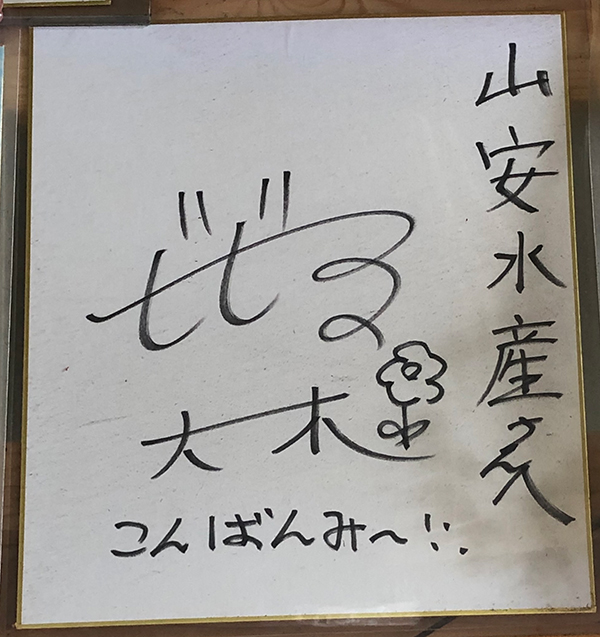 山安水産さん江
ビビる
大木
こんばんみ〜!!